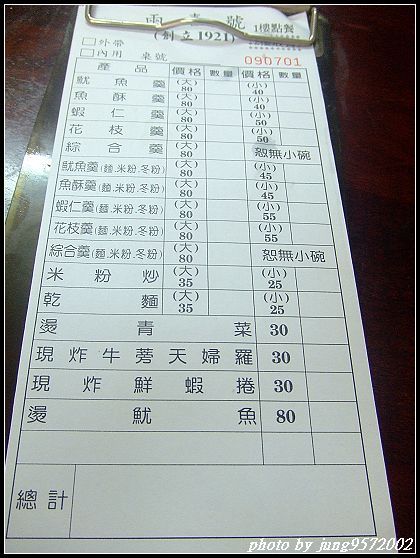 號 1樓點餐
(創立1921)
□外帶
□內用 桌號 090701
產品 價格 數量 價格 數量
魷魚羹 (大)80 (小)40
魚酥羹 (大)80 (小)40
蝦仁羹 (大)80 (小)50
花枝羹 (大)80 (小)50
綜合羹 (大)80 恕無小碗
魷魚羹(麵.米粉.冬粉) (大)80 (小)45
魚酥羹(麵.米粉.冬粉) (大)80 (小)45
蝦仁羹(麵.米粉.冬粉) (大)80 (小)55
花枝羹(麵.米粉.冬粉) (大)80 (小)55
綜合羹(麵.米粉.冬粉) (大)80 恕無小碗
米粉炒 (大)35 (小)25
乾麵 (大)35 (小)25
燙青菜 30
現炸牛蒡天婦羅 30
現炸鮮蝦捲 30
燙魷魚 80
總計
photo by jang9572002